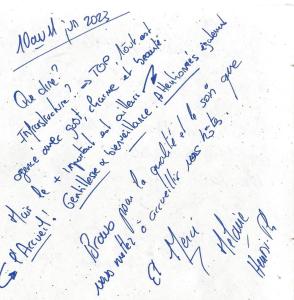 10 au 11 juin 2023
Que dire?
Infrastructure? => TOP, tout est
agencé avec goût, charme et beauté.
Mais le + important est ailleurs →
Gentillesse & bienveillance. Attentionnés également
→ l'Accueil!
Bravo pour la qualité et le soin que
vous mettez à accueillir vos hôtes.
Et Merci
Mélanie
Henri